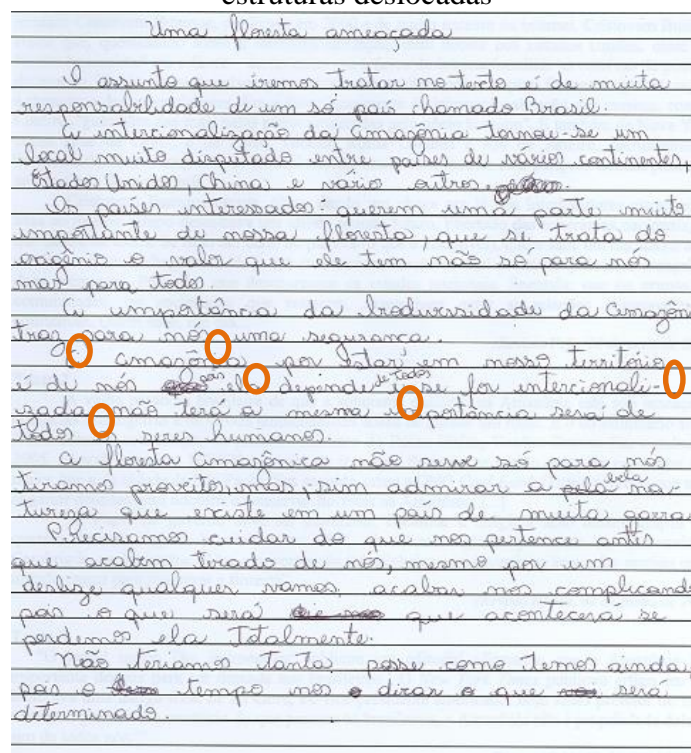 estruturas deslocadas
Uma floresta ameaçada
O assunto que iremos tratar no texto é de muita
responsabilidade de um só país chamado Brasil.
A intercionalização da Amazônia tornou-se um
local muito disputado entre países de vários continentes,
Estados Unidos, China e vário outros
Os países interessados querem uma parte muito
importante de nossa floresta, que se trata do
oxigênio o valor que ele tem não só para nós
mas para todos.
A importância da biodiversidade da Amazôni
traz para nós uma segurança.
A Amazônia por estar em nosso território
é de nós pois ela depende de todos se for intercionali-
zada não terá a mesma importância será de
todos os seres humanos.
A floresta Amazônica não serve só para nós
tiramos proveitos, mas sim admirar a bela na-
tureza que existe em um país de muita garra.
Precisamos cuidar do que nos pertence antes
que acabem tirado de nós, mesmo por um
deslize qualquer vamos acabar nos complicando
pois o que será que acontecerá se
perdemos ela totalmente.
Não teriamos tanta posse como temos ainda,
pois o tempo nos dirar o que será
determinado.